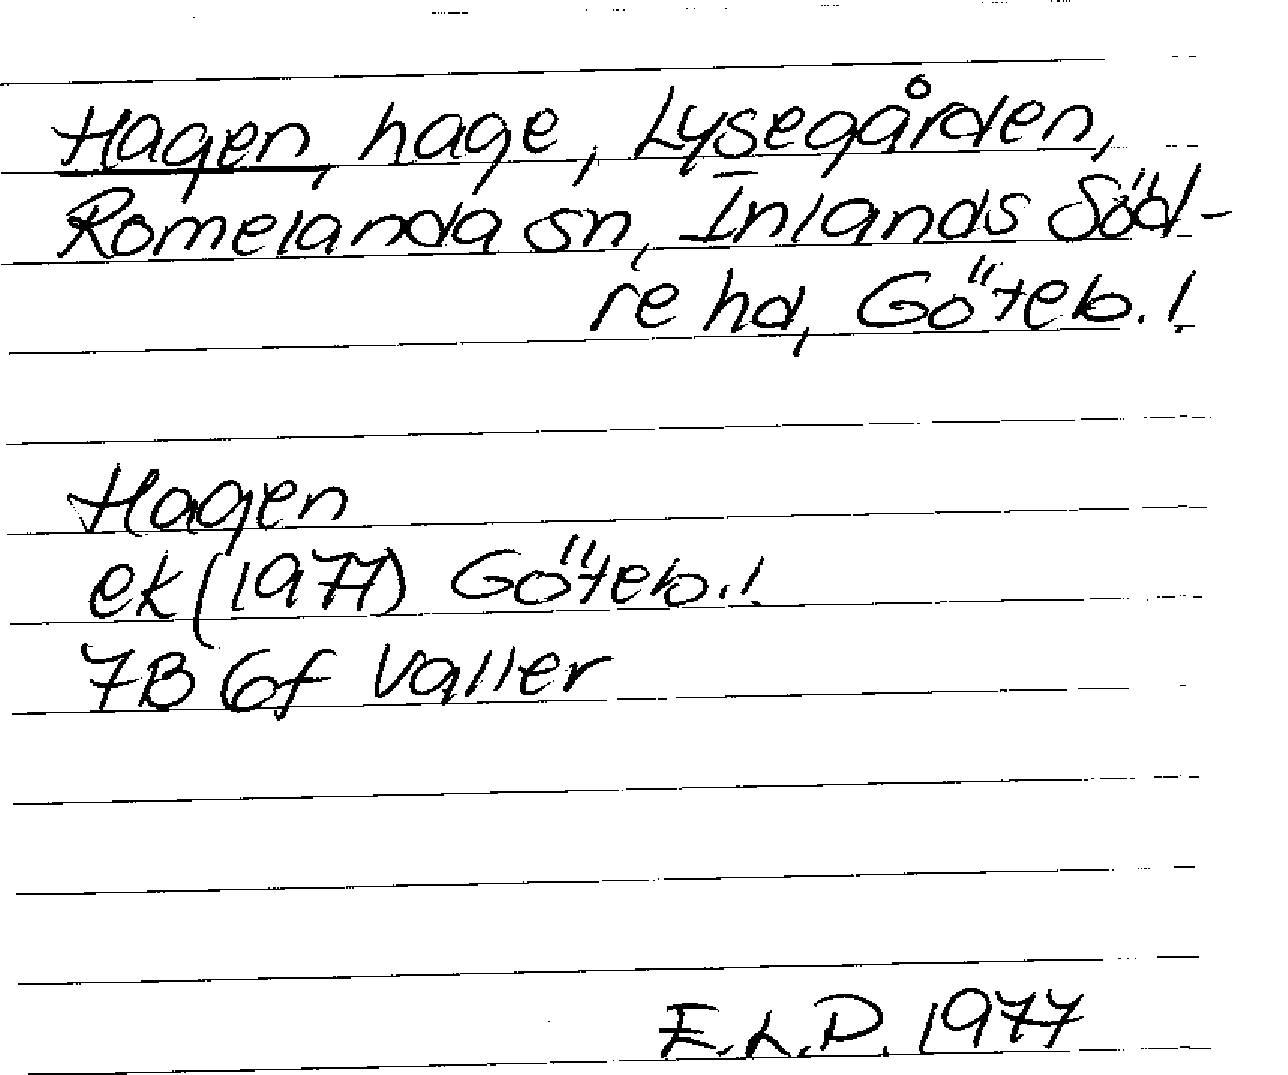 Hagen, hage, Lysegården,
Romelanda sn, Inlands Söd-
re hd, Göteb.!
Hagen
ek (1977) Göteb.!
7B 6f Valler
E.L.D. 1977